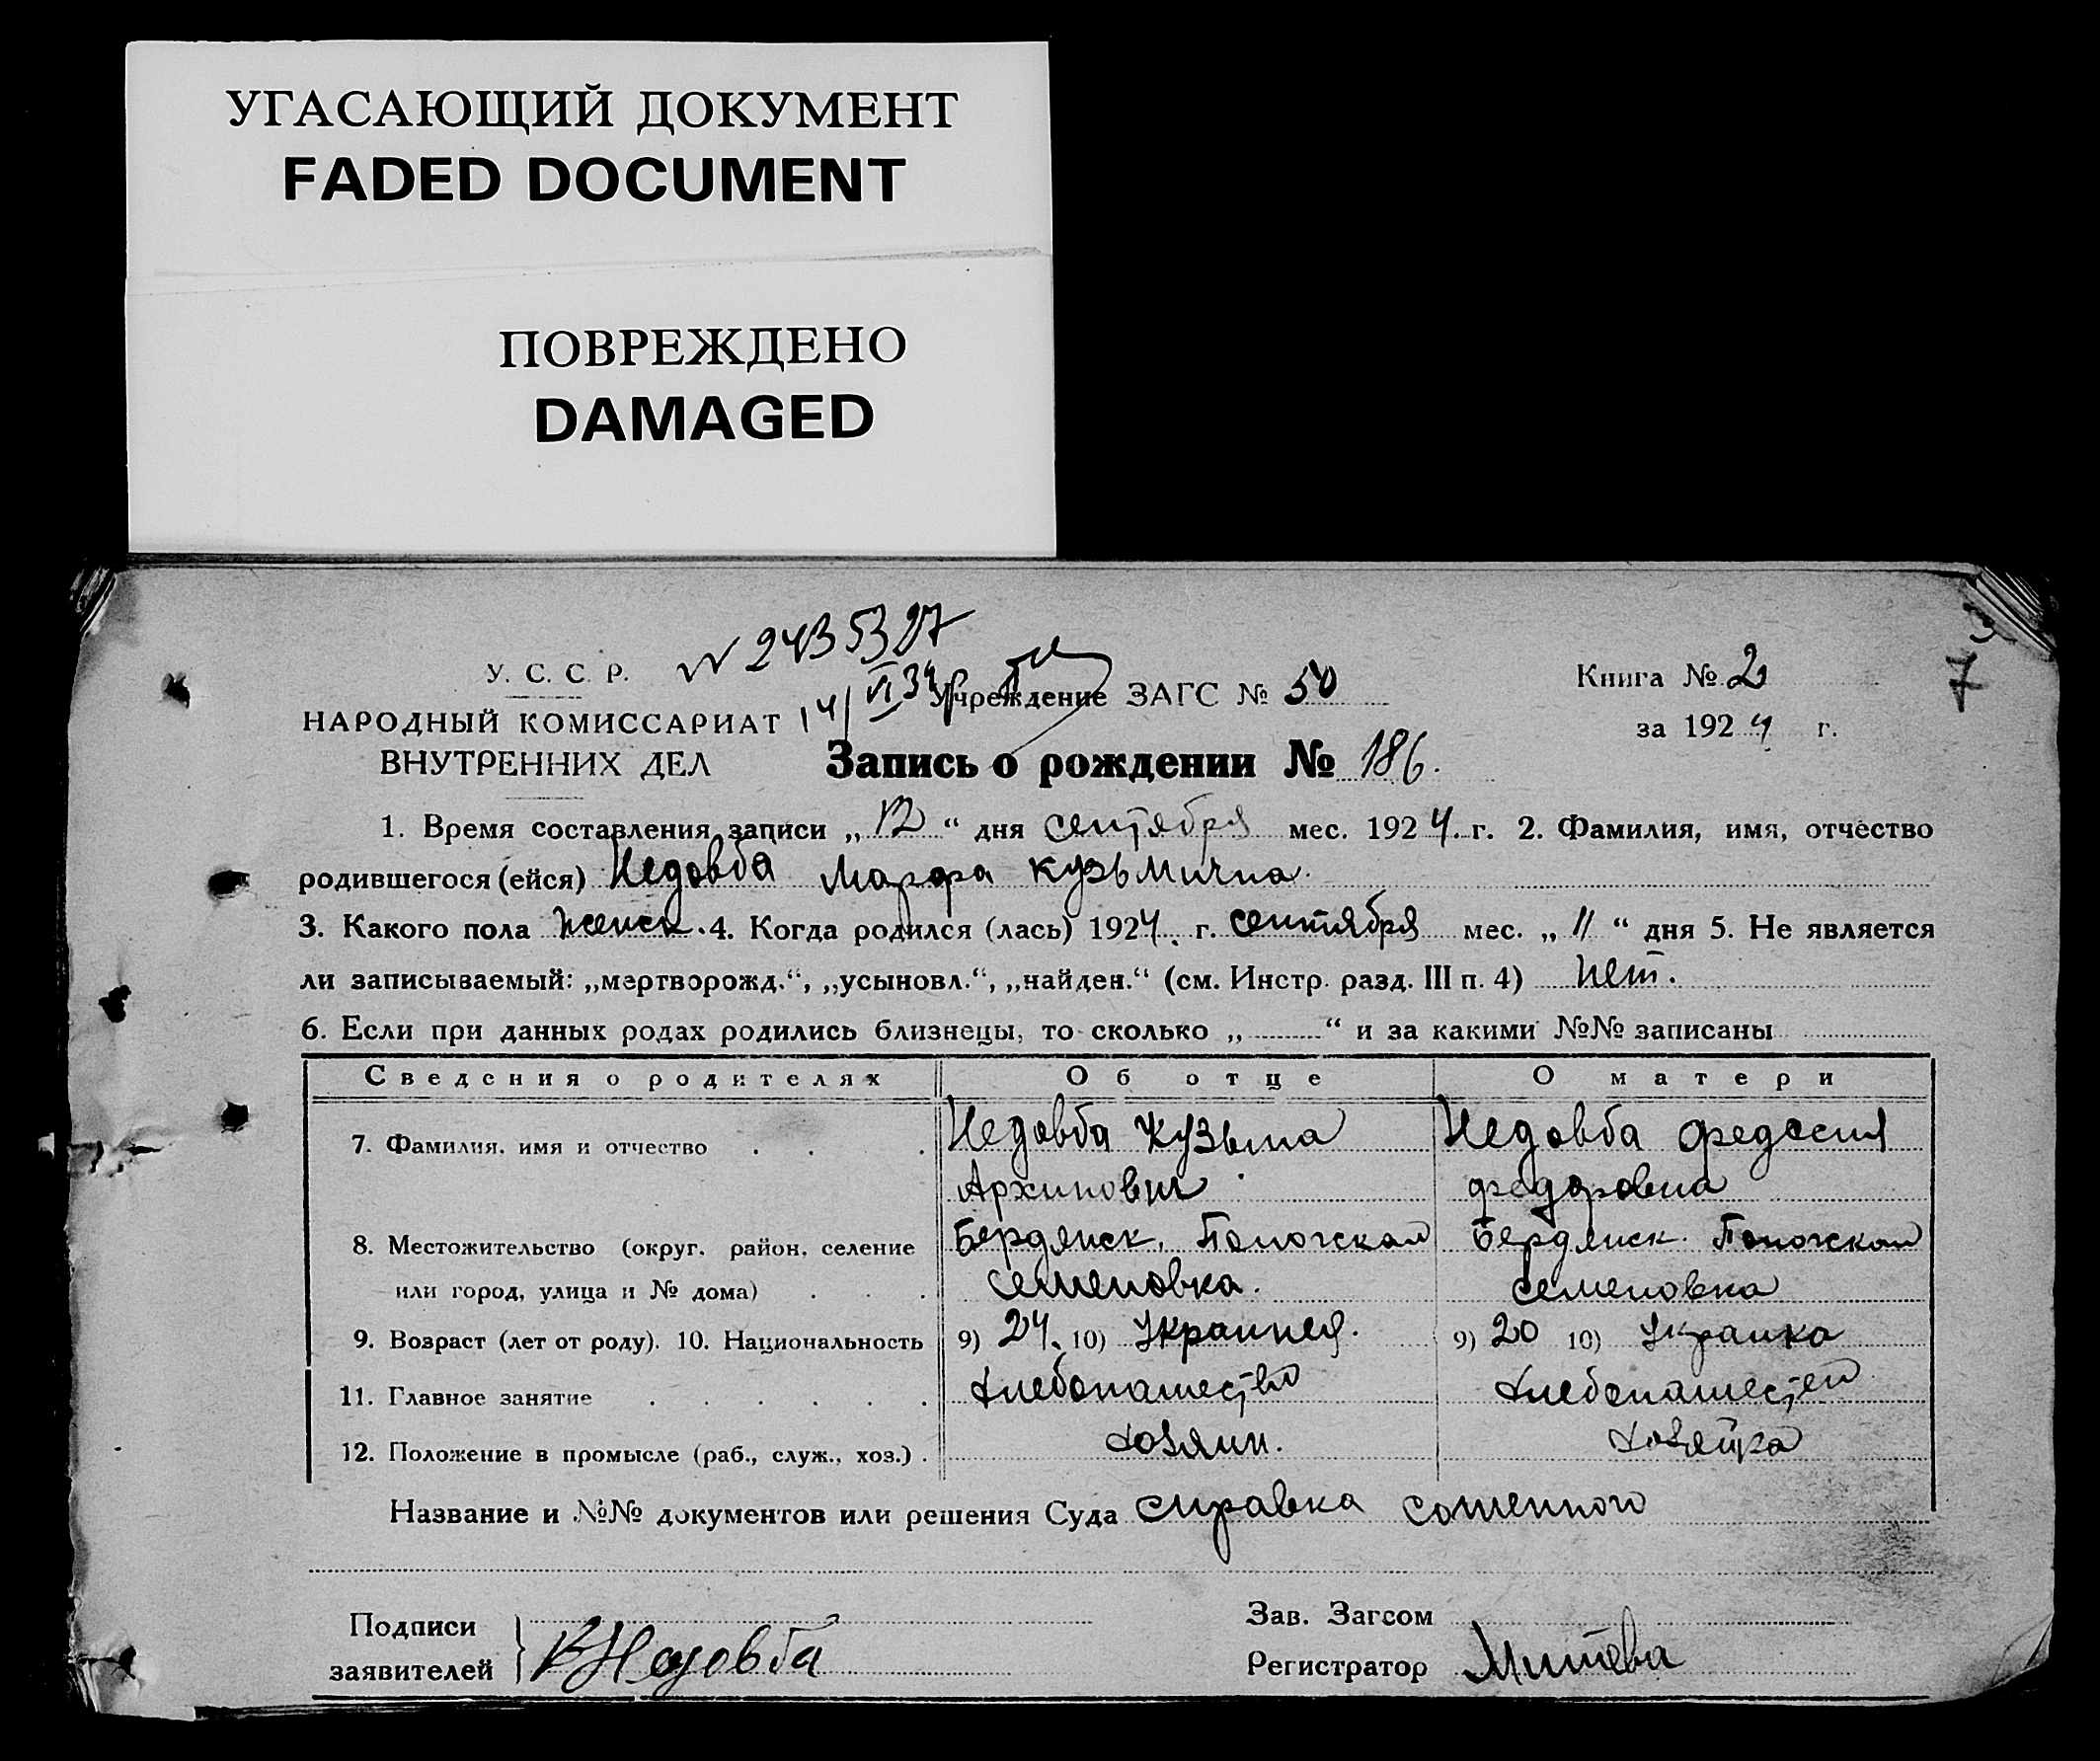 УГАСАЮЩИЙ ДОКУМЕНТ
FADED DOCUMENT
ПОВРЕЖДЕНО
DAMAGED
3
7
N 2435327
14/VI 34
У. С. С. Р.
НАРОДНЫЙ КОМИССАРИАТ
ВНУТРЕННИХ ДЕЛ
Учреждение ЗАГС № 50
Книга № 2
за 1924 г.
Запись о рождении № 186.
1. Время составления записи „12“ дня сентября мес. 1924. г. 2. Фамилия, имя, отчество
родившегося (ейся) Недовба Марфа Кузьмична.
3. Какого пола женск. 4. Когда родился (лась) 1924. г. сентября мес. „11“ дня 5. Не является
ли записываемый: „мертворожд.“, „усыновл.“, „найден.“ (см. Инстр. разд. III п. 4) Нет.
6. Если при данных родах родились близнецы, то сколько „ “ и за какими №№ записаны
Сведения о родителях Об отце О матери
7. Фамилия, имя и отчество Недовба Кузьма Недовба Федосия
Архипович Федоровна
8. Местожительство (округ, район, селение Бердянск. Пологском Бердянск. Пологском
или город, улица и № дома) Семеновка. Семеновка
9. Возраст (лет от роду). 10. Национальность 9) 24. 10) Украинец. 9) 20 10) Украинка
11. Главное занятие Хлебопашество Хлебопашество
12. Положение в промысле (раб., служ., хоз.) Хозяин. Хозяйка
Название и №№ документов или решения Суда справка
Подписи
заявителей } К Недовба
Зав. Загсом
Регистратор Митева